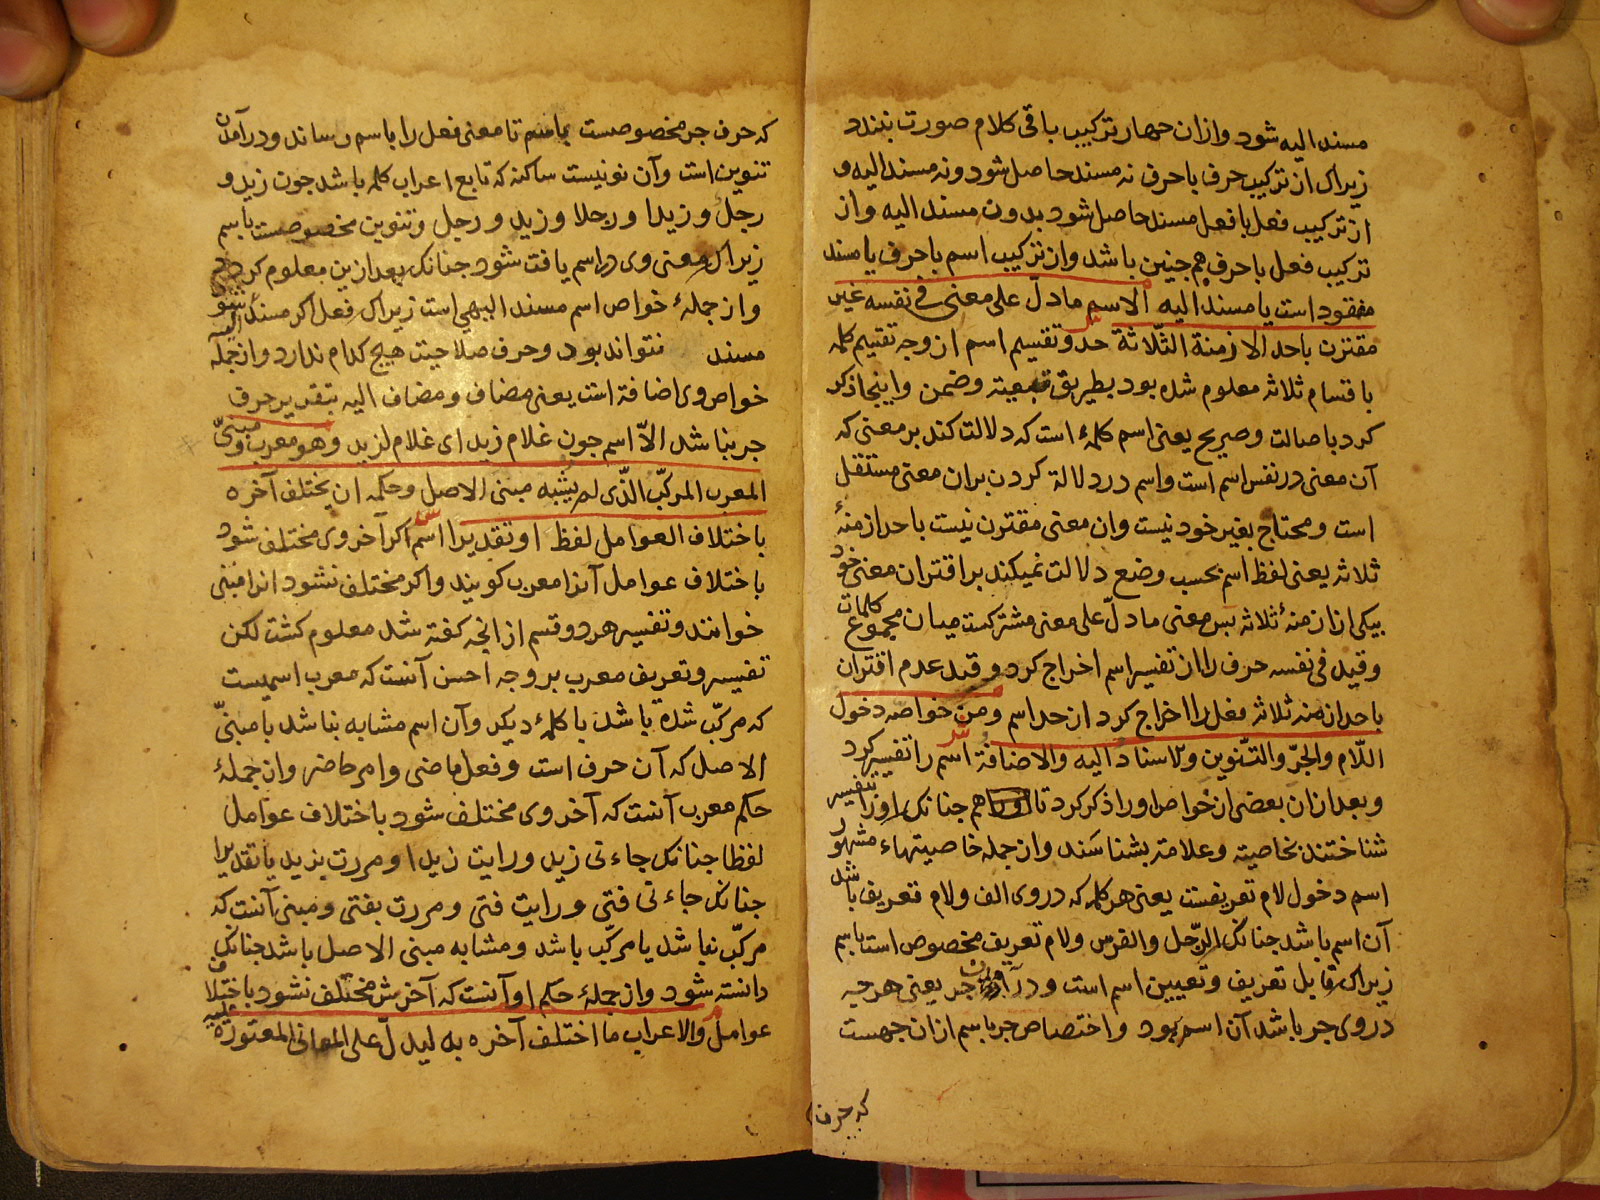 مسند الیه شود و ازان چهار ترکیب باقی کلام صورت نبندد
زیراک از ترکیب حرف با حرف نه مسند حاصل شود و نه مسند الیه و
از ترکیب فعل با فعل مسند حاصل شود بدون مسند الیه و از
ترکیب فعل با حرف هم چنین باشد و از ترکیب اسم با حرف یا مسند
مفقود است یا مسند الیه الاسم مادلّ علی معنی فی نفسه غیر
مقترن باحد الازمنة الثّلاثة حد و تقسیم اسم از وجه تقسیم کلمه
باقسام ثلاثه معلوم شده بود بطریق تبعیته و ضمن و اینجا ذکر
کرد باصالت و صریح یعنی اسم کلمهٔ است که دلالت کند بر معنی که
آن معنی در نفس اسم است و اسم در دلالة کردن بران معنی مستقل
است و محتاج بغیر خود نیست و ان معنی مقترن نیست باحد ازمنهٔ
ثلاثه یعنی لفظ اسم بحسب وضع دلالت نمیکند بر اقتران معنی خود
بیکی از ازمنهٔ ثلاثه پس معنی مادلّ علی معنی مشترکست میان مجموع کلمات
و قید فی نفسه حرف را از تفسیر اسم اخراج کرد و قید عدم اقتران
باحد ازمنه ثلاثه فعل را اخراج کرد از حد اسم و من خواصه دخول
اللّام والجرّ والتّنوین والاسناد الیه والاضافة اسم را تفسیر کرد
و بعد ازان بعضی از خواص او را ذکر کرد تا او را هم چنانک او را بتفسیر
شناختند بخاصیته و علامته بشناسند و از جمله خاصیتهاء مشهور
اسم دخول لام تعریفست یعنی هر کلمه که در وی الف و لام تعریف باشد
آن اسم باشد چنانک الرّجل والفرس و لام تعریف مخصوص است باسم
زیراک قابل تعریف و تعیین اسم است و درآمدن جر یعنی هرچه
در وی جر باشد آن اسم بود و اختصاص جر باسم ازان جهتست
که حرف
که حرف جر مخصوصست باسم تا معنی فعل را باسم رساند و درآمدن
تنوین است و آن نونیست ساکنه که تابع اعراب کلمه باشد چون زیدٌ و
رجلٌ و زیدا و رجلا و زیدٍ و رجلٍ و تنوین مخصوصست باسم
زیراک معنی وی در اسم یافت شود چنانک بعد ازین معلوم کردد
و از جملهٔ خواص اسم مسند الیهی است زیراک فعل اکر مسند شود
مسند الیه نتواند بود و حرف صلاحیت هیچ کدام ندارد و از جمله
خواص وی اضافة است یعنی مضاف و مضاف الیه بتقدیر حرف
جر نباشد الاّ اسم چون غلام زید ای غلام لزید وهو معرب و مبنیّ
المعرب المرکّب الذّی لم یشبه مبنی الاصل و حکمه ان یختلف آخره
باختلاف العوامل لفظا او تقدیرا اسم اکر آخر وی مختلف شود
باختلاف عوامل آنرا معرب کویند و اکر مختلف نشود انرا مبنی
خوانند و تفسیر هر دو قسم از انچه کفته شد معلوم کشت لکن
تفسیر و تعریف معرب بر وجه احسن آنست که معرب اسمیست
که مرکّب شده باشد با کلمهٔ دیکر و آن اسم مشابه نباشد با مبنیّ
الاصل که آن حرف است و فعل ماضی و امر حاضر و از جملهٔ
حکم معرب آنست که آخر وی مختلف شود باختلاف عوامل
لفظا چنانک جاءنی زید و رایت زیدا و مررت بزید یا تقدیرا
چنانک جاءنی فتی و رایت فتی و مررت بفتی و مبنی آنست که
مرکّب نباشد یا مرکّب باشد و مشابه مبنی الاصل باشد چنانک
دانسته شود و از جملهٔ حکم او آنست که آخرش مختلف نشود باختلاف
عوامل والاعراب ما اختلف آخره به لیدلّ علی المعانی المعتورة علیه